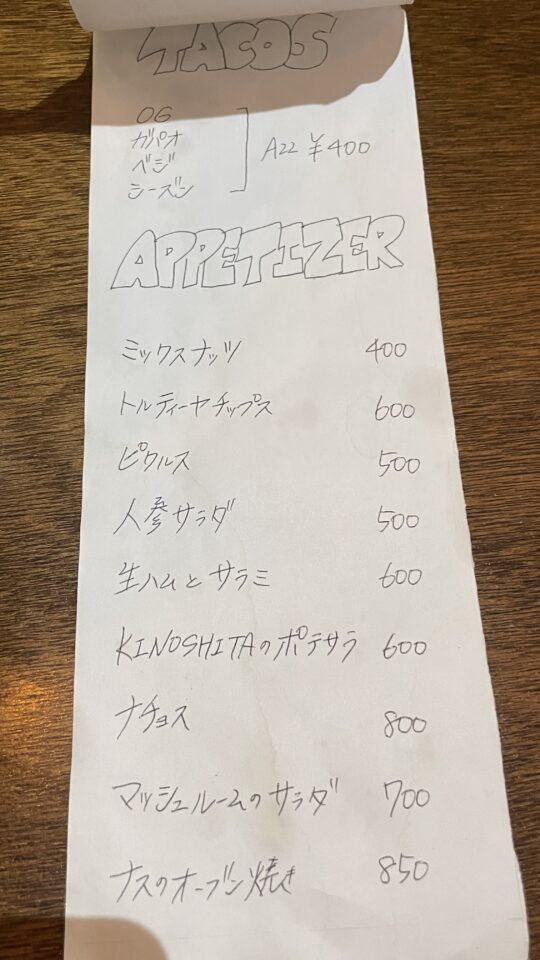 TACOS
OG
ガパオ
ベジ
シーズン
All ¥400
APPETIZER
ミックスナッツ 400
トルティーヤチップス 600
ピクルス 500
人参サラダ 500
生ハムとサラミ 600
KINOSHITAのポテサラ 600
ナチョス 800
マッシュルームのサラダ 700
ナスのオーブン焼き 850